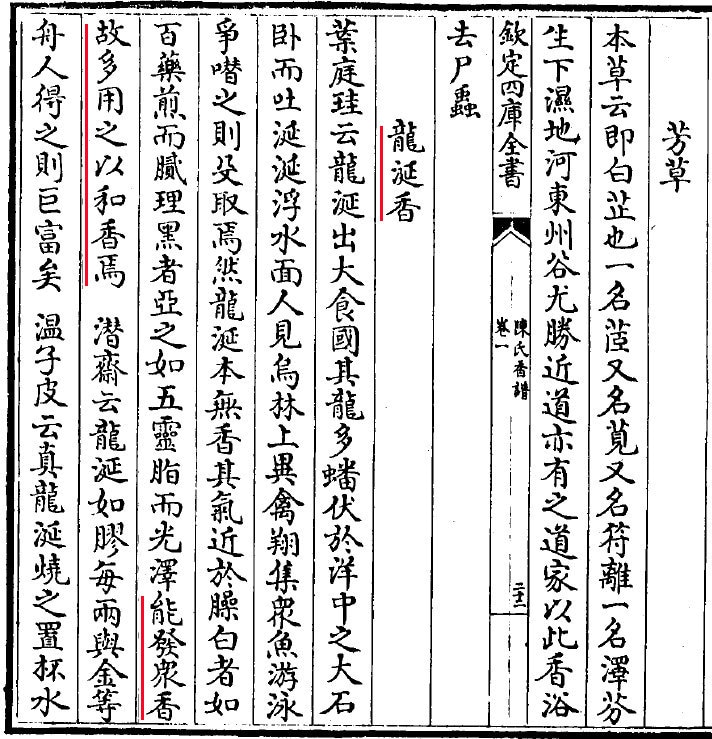 芳草
本草云即白芷也一名茝又名莧又名符離一名澤芬
生下濕地河東州谷尤勝近道亦有之道家以此香浴
欽定四庫全書
陳氏香譜
卷一
二十二
去尸蟲
龍涎香
葉庭珪云龍涎出大食國其龍多蟠伏於洋中之大石
卧而吐涎涎浮水面人見烏林上異禽翔集衆魚游泳
爭噆之則殳取焉然龍涎本無香其氣近於臊白者如
百藥煎而膩理黑者亞之如五靈脂而光澤能發衆香
故多用之以和香焉 潛齋云龍涎如膠每兩與金等
舟人得之則巨富矣 温子皮云真龍涎燒之置杯水